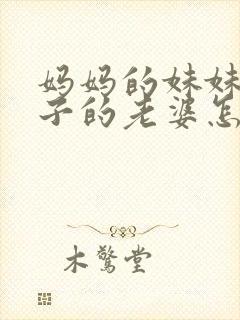 妈妈的妹妹
子的老婆怎
木鸳堂